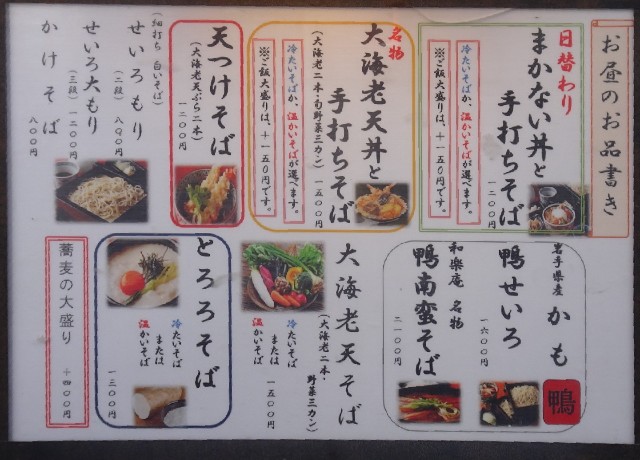 お昼のお品書き
日替わり
まかない丼と
手打ちそば
一二〇〇円
冷たいそばか、温かいそばが選べます。
※ご飯大盛りは、＋一五〇円です。
名物
大海老天丼と
手打ちそば
(大海老二本・旬野菜三カン)
一五〇〇円
冷たいそばか、温かいそばが選べます。
※ご飯大盛りは、＋一五〇円です。
天つけそば
(大海老天ぷら二本)
一二〇〇円
(細打ち 白いそば)
せいろもり
(二段) 八〇〇円
せいろ大もり
(三段) 一二〇〇円
かけそば
八〇〇円
岩手県産
かも
鴨せいろ
一六〇〇円
鴨
和楽庵 名物
鴨南蛮そば
二一〇〇円
大海老天そば
(大海老二本・
野菜三カン)
一五〇〇円
冷たいそば
または
温かいそば
とろろそば
冷たいそば
または
温かいそば
一三〇〇円
蕎麦の大盛り
＋四〇〇円